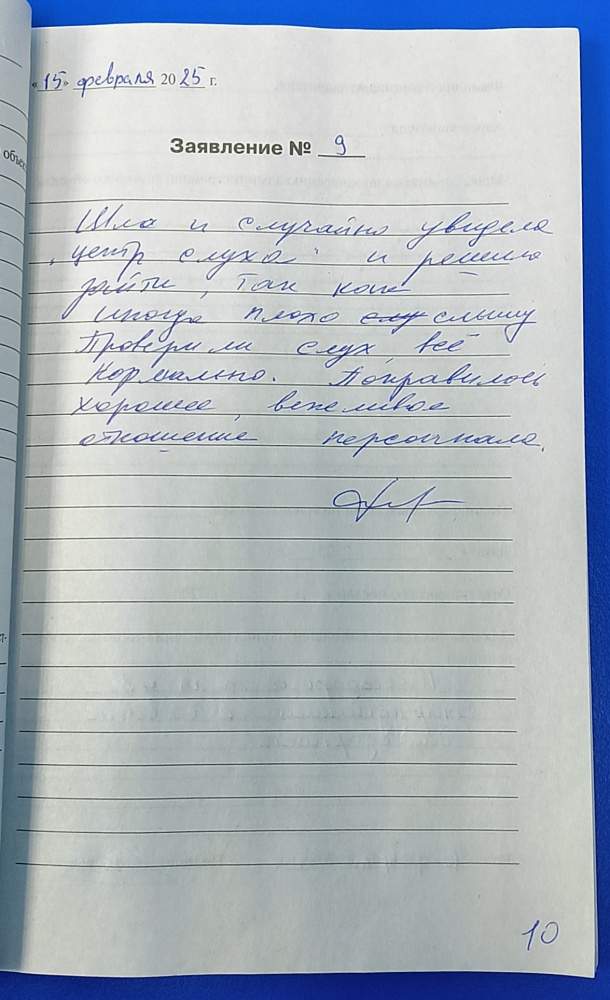 «15» февраля 2025 г.
Заявление № 9
объек
Шла и случайно увидела
"центр слуха" и решила
зайти, так как
иногда плохо слу слышу
Проверили слух, всё
нормально. Понравилось
хорошее, вежливое
отношение персонала.
10